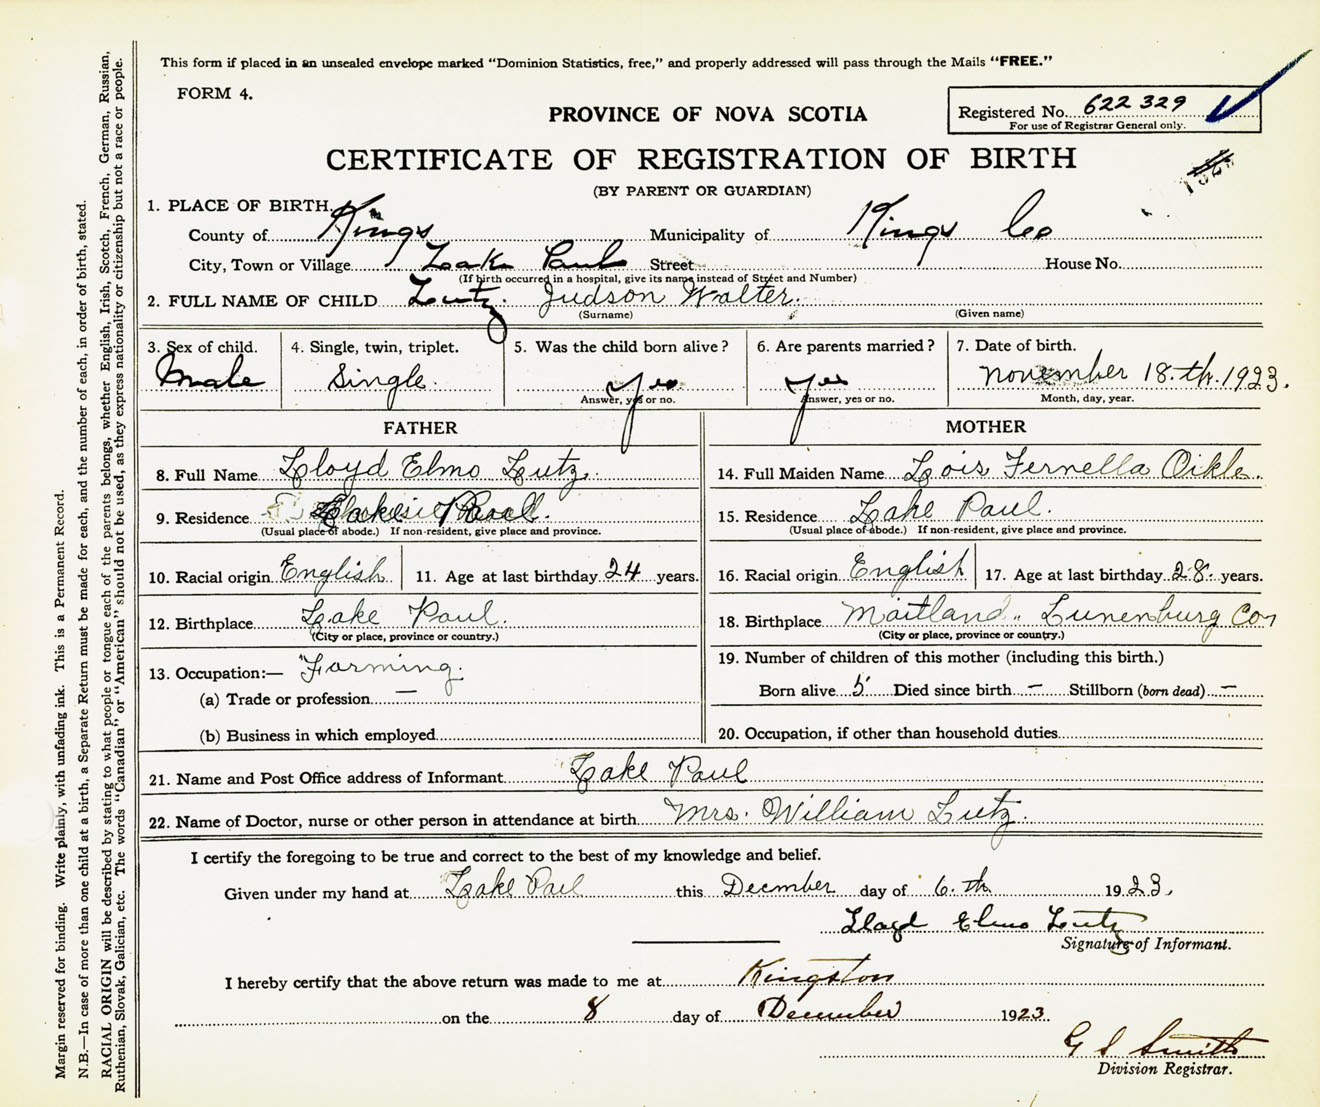 This form if placed in an unsealed envelope marked "Dominion Statistics, free," and properly addressed will pass through the Mails "FREE."
FORM 4.
PROVINCE OF NOVA SCOTIA
Registered No. 622329
For use of Registrar General only.
CERTIFICATE OF REGISTRATION OF BIRTH
(BY PARENT OR GUARDIAN)
1. PLACE OF BIRTH.
County of Kings Municipality of Kings Co
City, Town or Village Lake Paul Street House No.
(If birth occurred in a hospital, give its name instead of Street and Number)
2. FULL NAME OF CHILD Lutz. Judson Walter.
(Surname) (Given name)
3. Sex of child. 4. Single, twin, triplet. 5. Was the child born alive? 6. Are parents married? 7. Date of birth.
Male Single. Yes Yes November 18.th.1923.
Answer, yes or no. Answer, yes or no. Month, day, year.
FATHER MOTHER
8. Full Name Lloyd Elmo Lutz. 14. Full Maiden Name Lois Fernella Oikle.
9. Residence Lake Paul. 15. Residence Lake Paul.
(Usual place of abode.) If non-resident, give place and province. (Usual place of abode.) If non-resident, give place and province.
10. Racial origin English 11. Age at last birthday 24 years. 16. Racial origin English 17. Age at last birthday 28. years.
12. Birthplace Lake Paul. 18. Birthplace Maitland. Lunenburg Co
(City or place, province or country.) (City or place, province or country.)
13. Occupation:— Farming. 19. Number of children of this mother (including this birth.)
(a) Trade or profession — Born alive 5 Died since birth — Stillborn (born dead) —
(b) Business in which employed 20. Occupation, if other than household duties
21. Name and Post Office address of Informant Lake Paul
22. Name of Doctor, nurse or other person in attendance at birth Mrs. William Lutz.
I certify the foregoing to be true and correct to the best of my knowledge and belief.
Given under my hand at Lake Paul this Decmber day of 6.th 1923.
Lloyd Elmo Lutz
Signature of Informant.
I hereby certify that the above return was made to me at Kingston
on the 8 day of December 1923
G S Smith
Division Registrar.
Margin reserved for binding. Write plainly, with unfading ink. This is a Permanent Record.
N.B.—In case of more than one child at a birth, a Separate Return must be made for each, and the number of each, in order of birth, stated.
RACIAL ORIGIN will be described by stating to what people or tongue each of the parents belongs, whether English, Irish, Scotch, French, German, Russian,
Ruthenian, Slovak, Galician, etc. The words "Canadian" or "American" should not be used, as they express nationality or citizenship but not a race or people.